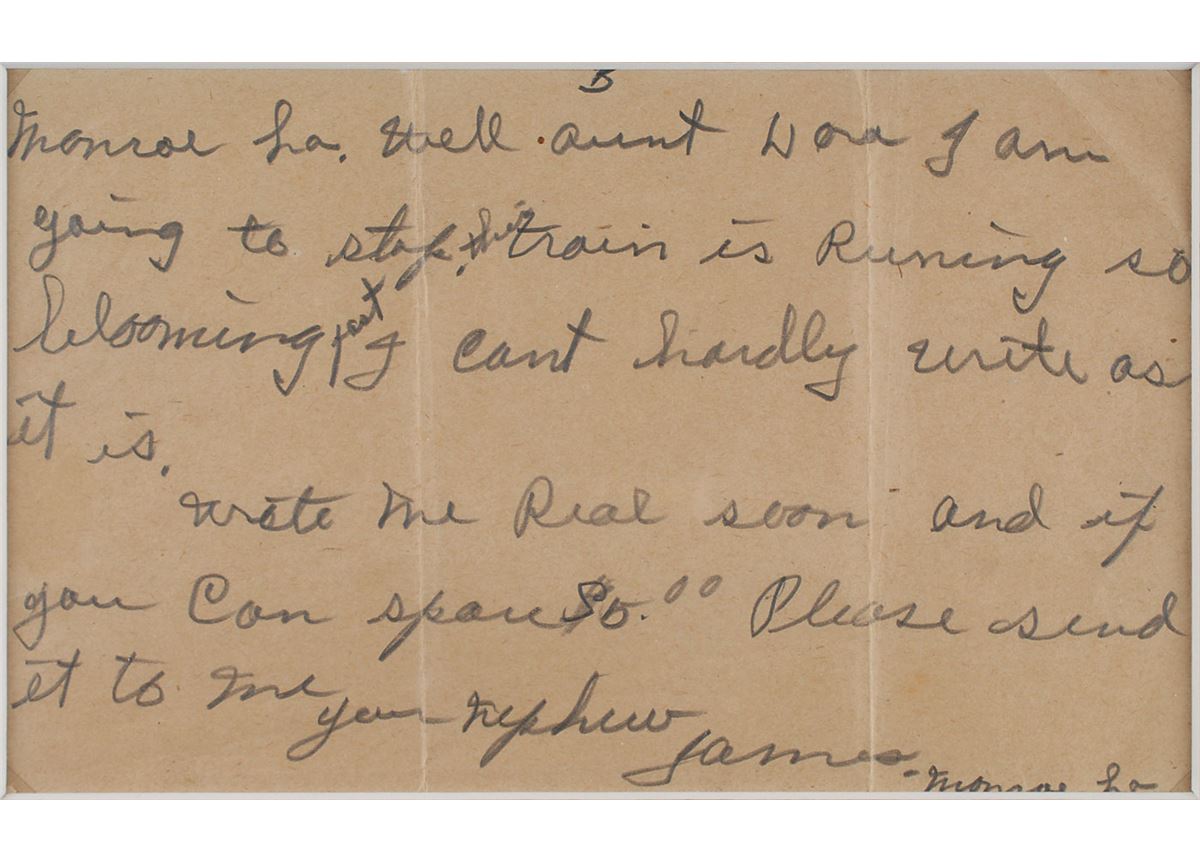 5
Monroe La. Well aunt Dora I am
going to stop. this train is Runing so
blooming fast I cant hardly write as
it is.
write me Real soon and if
you Can spare $5.00 Please send
it to me
your nephew
James.
Monroe La